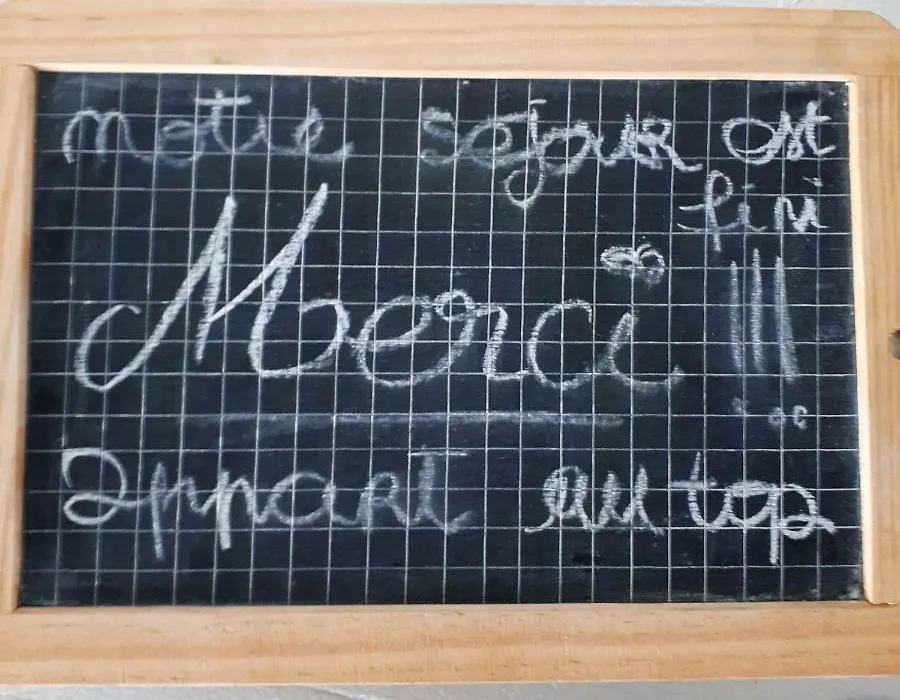 notre sejour est
fini
Merci !!!
Appart au top